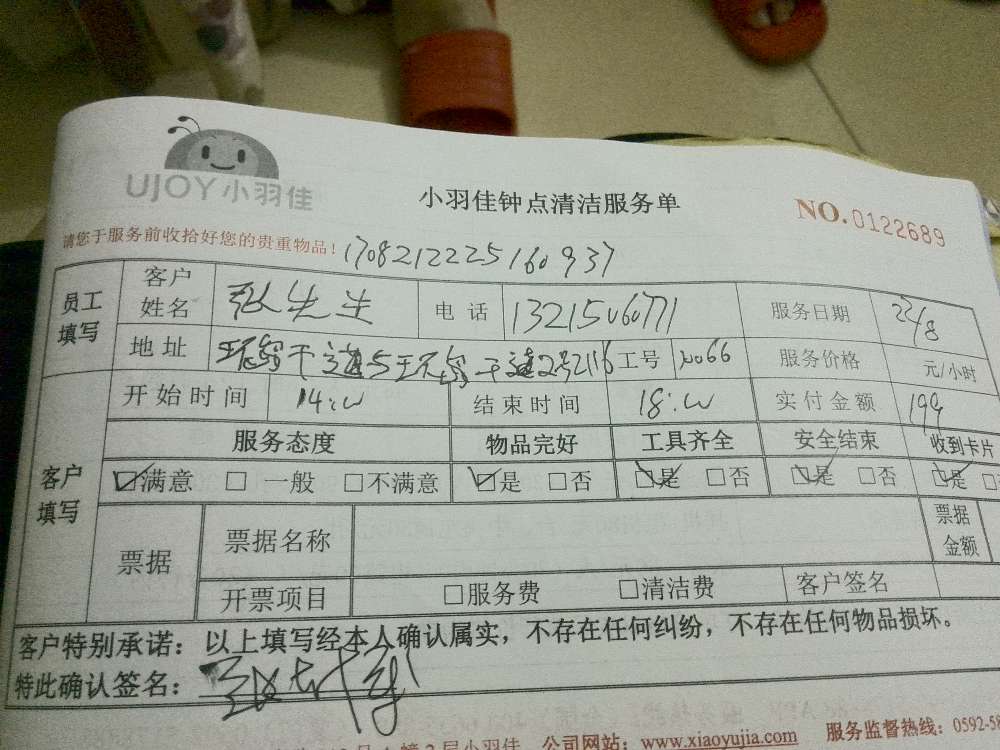 UJOY小羽佳
小羽佳钟点清洁服务单 NO.0122689
请您于服务前收拾好您的贵重物品! 1708212225160937
员工填写 客户姓名 张先生 电话 13215060771 服务日期 22/8
地址 干道与 干道2号2116 工号 No66 服务价格 元/小时
客户填写 开始时间 14: 结束时间 18: 实付金额 199
服务态度 物品完好 工具齐全 安全结束 收到卡片
☑满意 □一般 □不满意 ☑是 □否 ☑是 □否 ☑是 □否 ☑是 □
票据 票据名称 票据金额
开票项目 □服务费 □清洁费 客户签名
客户特别承诺：以上填写经本人确认属实，不存在任何纠纷，不存在任何物品损坏。
特此确认签名：
2层小羽佳 公司网站：www.xiaoyujia.com 服务监督热线：0592-58